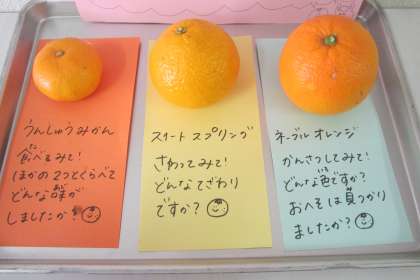 うんしゅうみかん
食べてみて!
ほかの2つとくらべて
どんな味が
しましたか?
スイートスプリング
さわってみて!
どんなてざわり
ですか?
ネーブルオレンジ
かんさつしてみて!
どんな色ですか?
おへそは見つかり
ましたか?